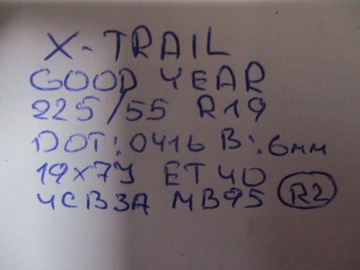 X-TRAIL
GOOD YEAR
225/55 R19
DOT:0416 B:6мм
19x7J ET40
4CB3A MB95 R2